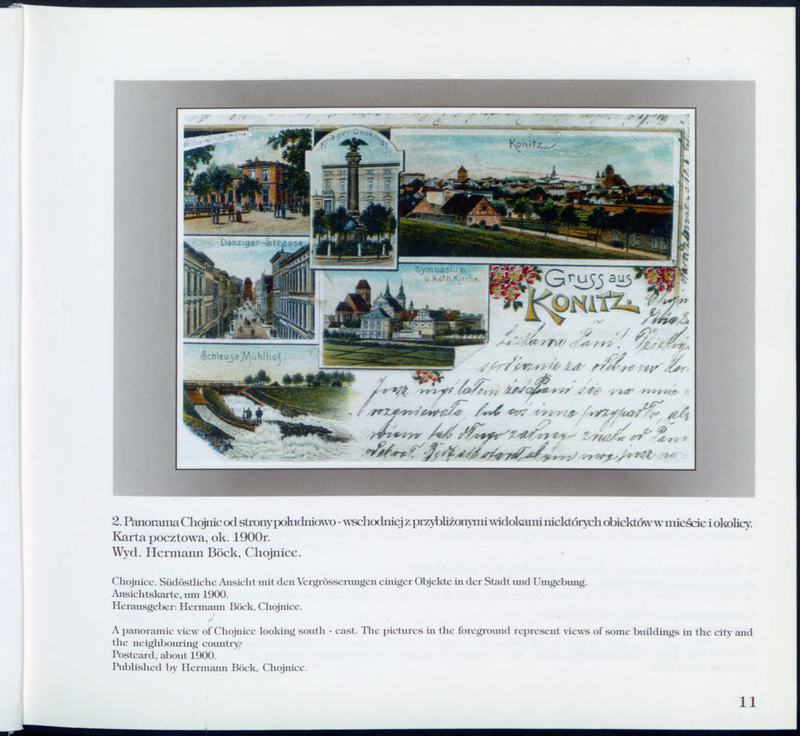 Krieger-Denkmal
Konitz
Danziger-Strasse
Gymnasium
u. Kath. Kirche.
Gruss aus
KONITZ.
Schleuse Mühlhof.
Łaskawa Pani!
serdecznie za
Jusz myślałem że Pani się na mnie
rozgniewała, lub co inne przypadło, ale
2. Panorama Chojnic od strony południowo - wschodniej z przybliżonymi widokami niektórych obiektów w mieście i okolicy.
Karta pocztowa, ok. 1900r.
Wyd. Hermann Böck, Chojnice.
Chojnice. Südöstliche Ansicht mit den Vergrösserungen einiger Objekte in der Stadt und Umgebung.
Ansichtskarte, um 1900.
Herausgeber: Hermann Böck, Chojnice.
A panoramic view of Chojnice looking south - east. The pictures in the foreground represent views of some buildings in the city and
the neighbouring country.
Postcard, about 1900.
Published by Hermann Böck, Chojnice.
11